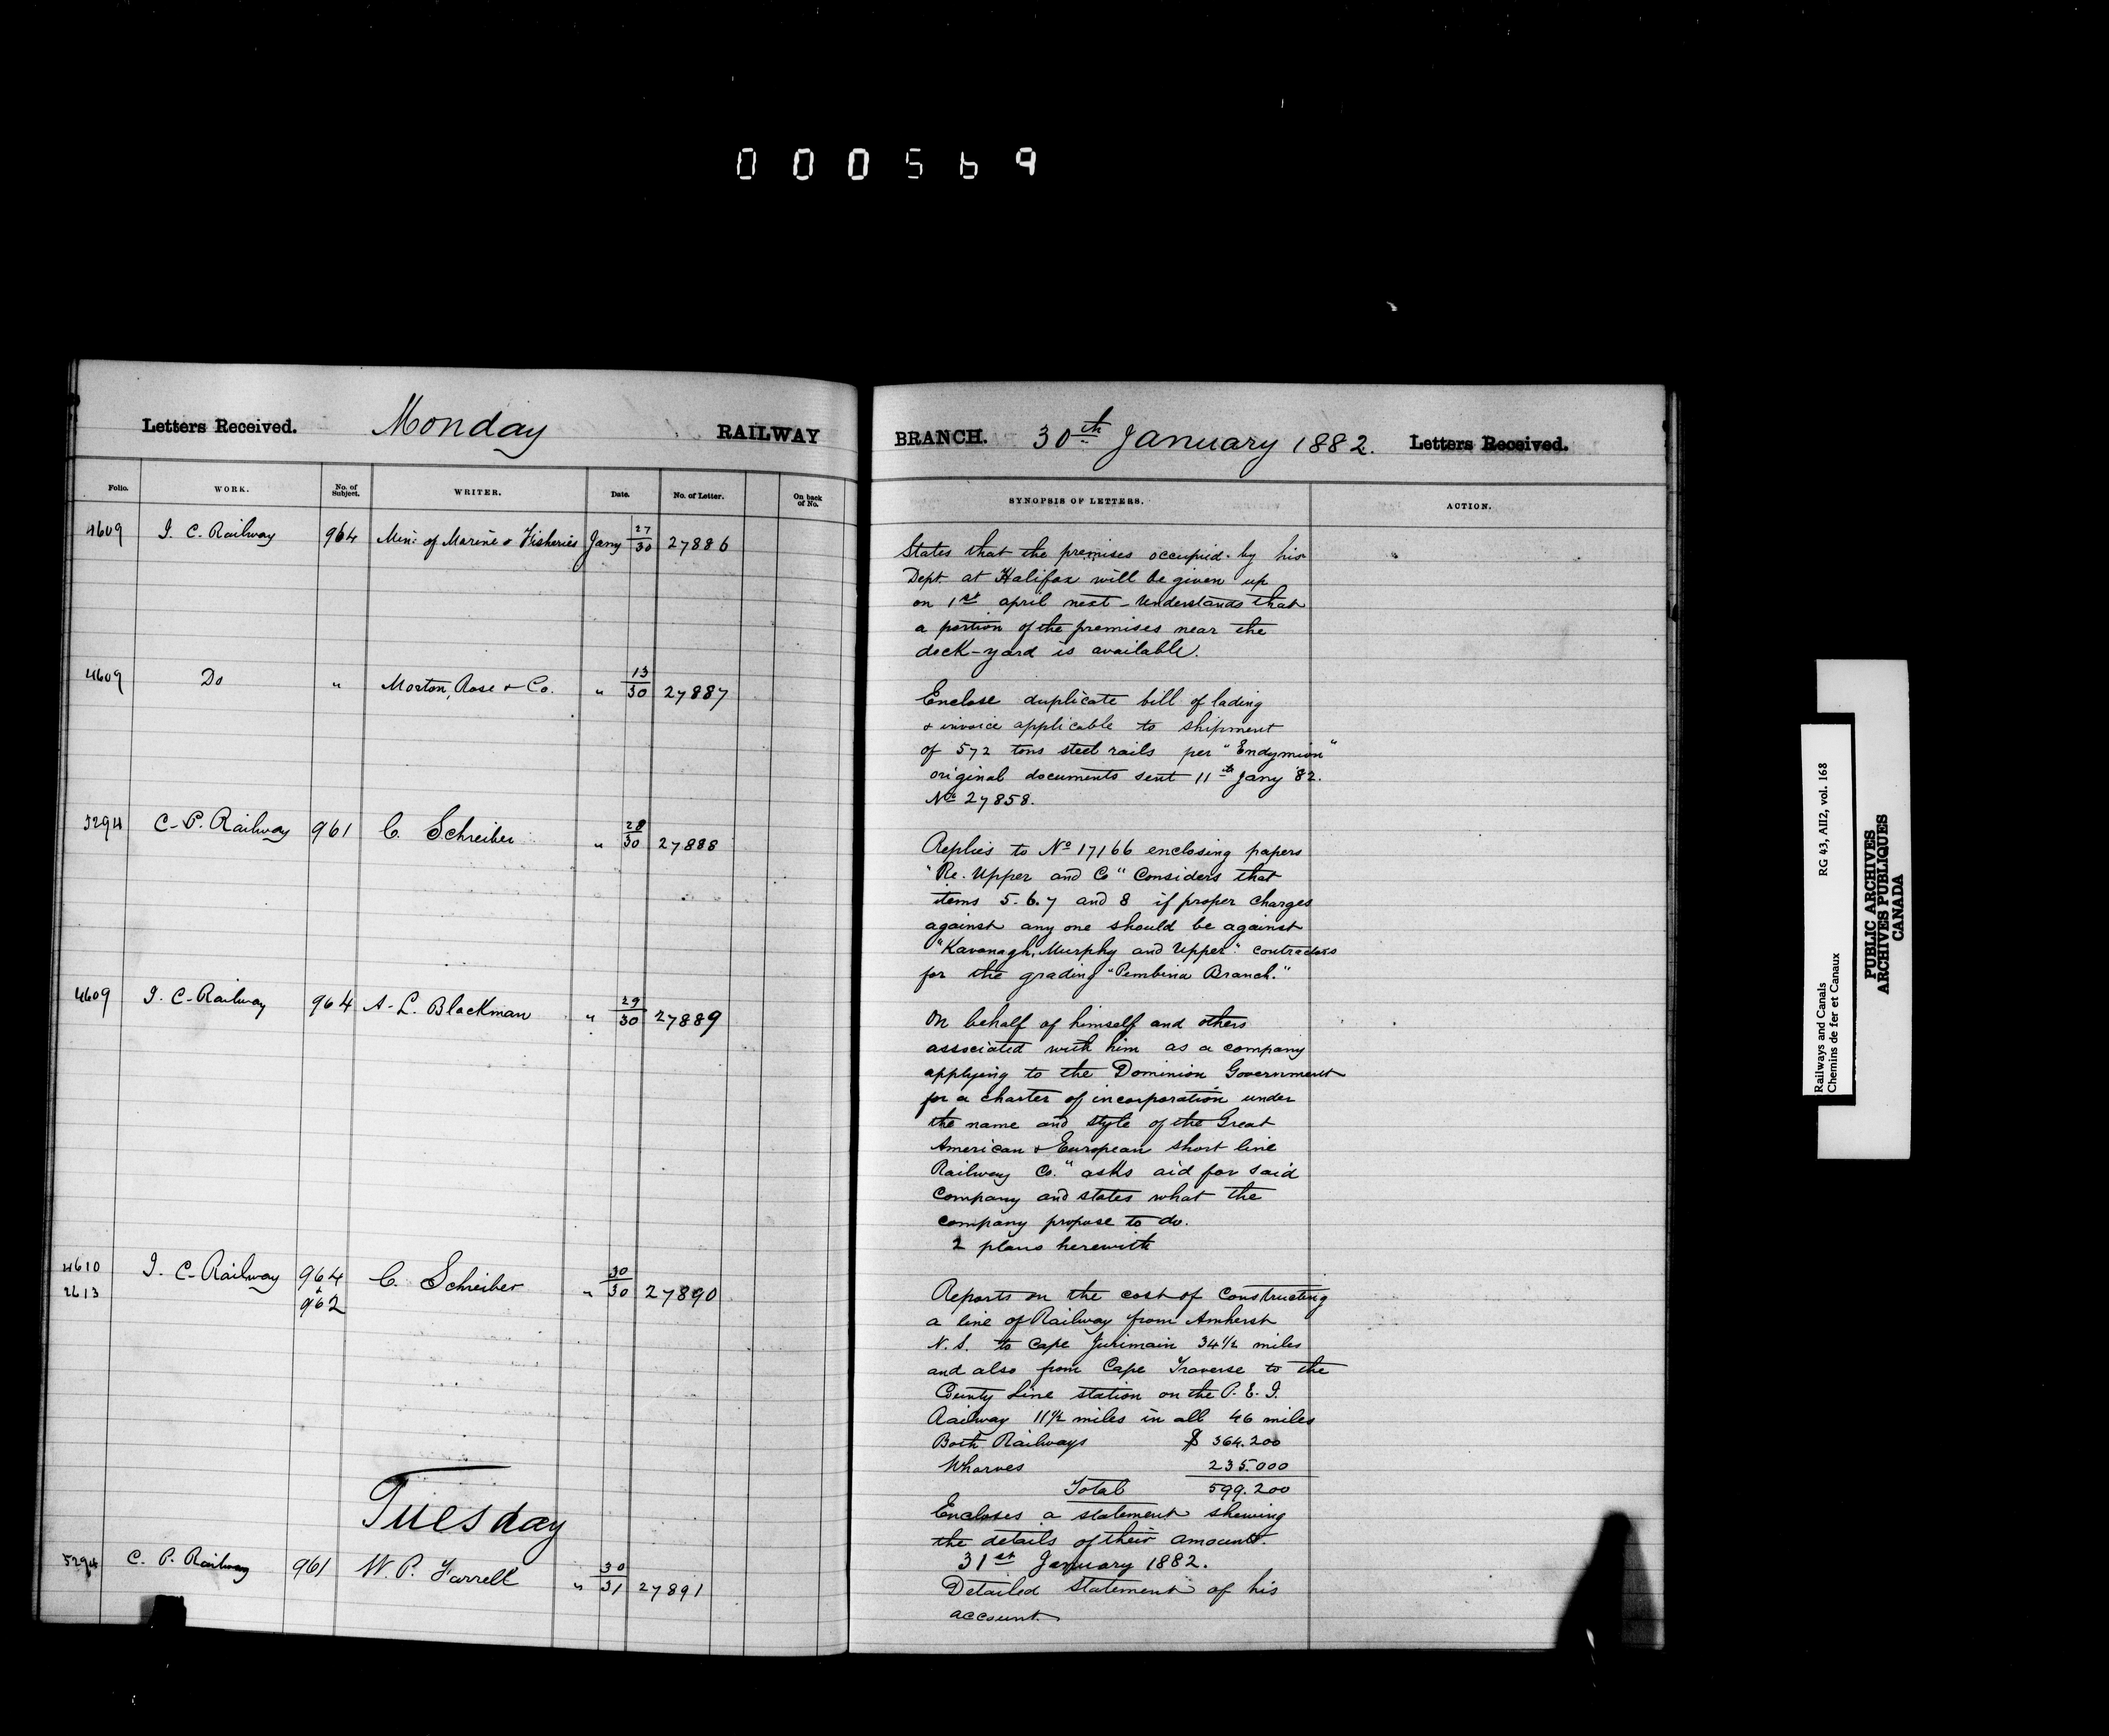 000569
Letters Received. Monday RAILWAY
BRANCH. 30th January 1882. Letters Received.
Folio. WORK. No. of Subject. WRITER. Date. No. of Letter. On back of No.
SYNOPSIS OF LETTERS. ACTION.
4609 I. C. Railway 964 Min: of Marine & Fisheries Jany 27/30 27886
States that the premises occupied by his
Dept. at Halifax will be given up
on 1st april next - Understands that
a portion of the premises near the
dock-yard is available.
4609 Do " Morton, Rose & Co. " 13/30 27887
Enclose duplicate bill of lading
& invoice applicable to shipment
of 572 tons steel rails per "Endymion"
original documents sent 11th Jany '82.
No 27858.
5294 C. P. Railway 961 C. Schreiber " 28/30 27888
Replies to No 17166 enclosing papers
"Re. Upper and Co" Considers that
items 5. 6. 7 and 8 if proper charges
against any one should be against
"Kavanagh, Murphy and Upper" contractors
for the grading "Pembina Branch."
4609 I. C. Railway 964 A. L. Blackman " 29/30 27889
On behalf of himself and others
associated with him as a company
applying to the Dominion Government
for a charter of incorporation under
the name and style of the Great
American & European short line
Railway Co." asks aid for said
Company and states what the
company propose to do.
2 plans herewith
4610 I. C. Railway 964 C. Schreiber " 30/30 27890
2613 & 962
Reports on the cost of Constructing
a line of Railway from Amherst
N. S. to Cape Jurimain 34 1/2 miles
and also from Cape Traverse to the
County Line station on the P. E. I.
Railway 11 1/2 miles in all 46 miles
Both Railways $ 364.200
Wharves 235.000
Total 599.200
Encloses a statement shewing
the details of their amounts.
Tuesday
31st January 1882.
5294 C. P. Railway 961 W. P. Farrell " 30/31 27891
Detailed statement of his
account
Railways and Canals RG 43, AII2, vol. 168
Chemins de fer et Canaux
PUBLIC ARCHIVES
ARCHIVES PUBLIQUES
CANADA